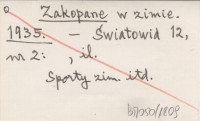 Zakopane w zimie.
1935. – Światowid 12,
nr 2: , il.
Sporty zim. itd.